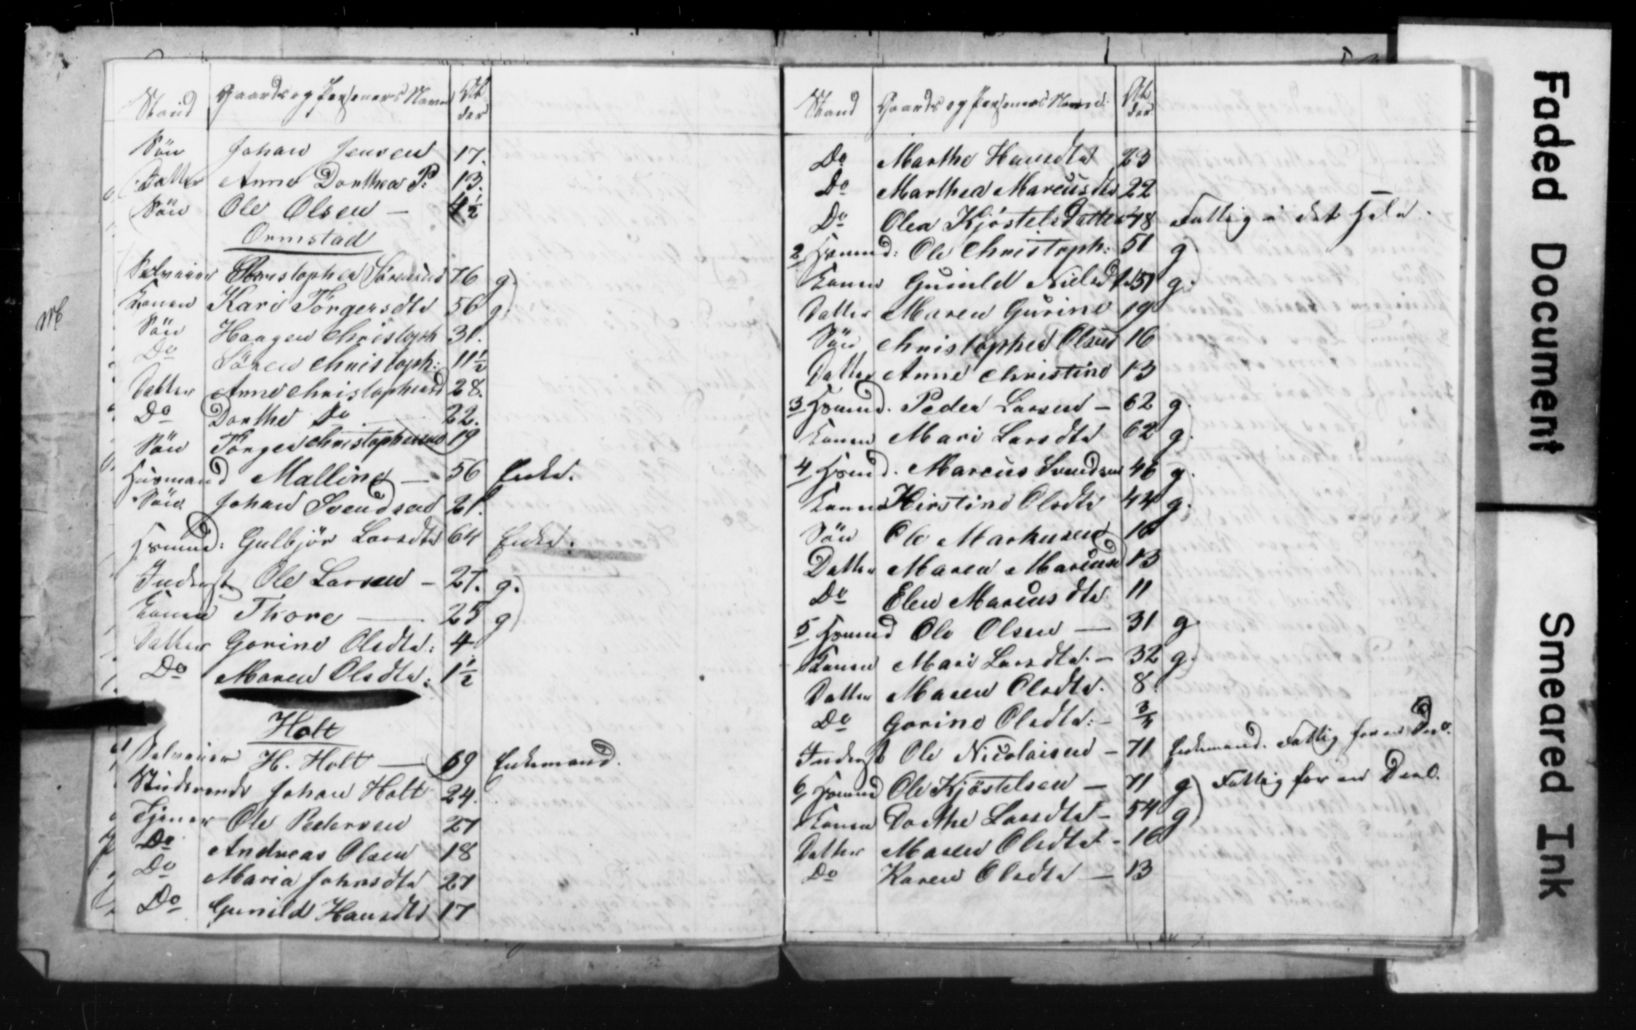 Stand Gaards og Personers Navne Alder
Sön Johan Jensen 17.
Datter Anne Dorthea P: 13.
Sön Ole Olsen — 4½
Ormstad
Selveier Christopher Sörensen 76 g.
Konen Kari Törgersdtr 56 g.
Sön Haagen Christoph 31.
Do Sören Christoph: 11½
Datter Anne Christophersd 28.
Do Dorthe Do 22.
Sön Törger Christophersen 19
Huusmand Malline — 56 Enke.
Sön Johan Svendsen 21.
Huusmd: Gulbjör Larsdtr 64 Enke.
Inderst Ole Larsen — 27. g.
Konen Thore — 25 g
Datter Gorine Olsdtr: 4
Do Maren Olsdtr: 1½
Holt
Selveier H. Holt — 69 Enkemand.
Studerende Johan Holt 24.
Tjener Ole Pedersen 27
Do Andreas Olsen 18
Do Maria Johnsdtr 27
Do Gunild Hansdtr 17
Stand Gaards og Personers Navne. Alder
Do Marthe Hansdtr 23
Do Marthea Marcusdtr 22
Do Olea Kjöstels Datter 48 Fattig i det Hele.
2 Huusmd: Ole Christoph: 51 g
Konen Gunild Nielsdtr 51 g.
Datter Maren Gurine 19
Sön Christopher Olsen 16
Datter Anne Christine 13
3 Huusmd. Peder Larsen — 62 g.
Konen Mari Larsdtr 62 g.
4 Huusmd. Marcus Svendsen 46 g.
Konen Kirstine Olsdtr 44 g.
Sön Ole Markusen 16
Datter Maren Marcusd 13
Do Elen Marcusdtr 11
5 Huusmd Ole Olsen — 31 g.
Konen Mari Larsdtr. — 32 g.
Datter Maren Olsdtr. 8
Do Gorine Olsdtr: —
Inderst Ole Nicolaisen — 71 Enkemand. Fattig for en Deel.
6 Huusmd Ole Kjöstelsen — 71 g Fattig for en Deel.
Konen Dorthe Larsdtr — 54 g
Datter Maren Olsdtr — 16
Do Karen Olsdtr — 13
Faded Document
Smeared Ink